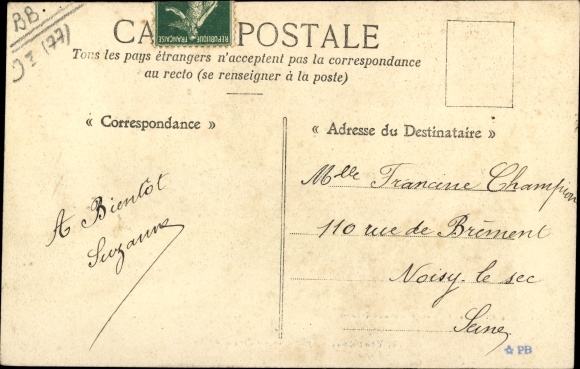 BB
JI (77)
RÉPUBLIQUE FRANÇAISE
CARTE POSTALE
Tous les pays étrangers n'acceptent pas la correspondance
au recto (se renseigner à la poste)
« Correspondance »
A Bientôt
Suzanne
« Adresse du Destinataire »
Mlle Francine Champion
110 rue de Brément
Noisy-le sec
Seine
PB